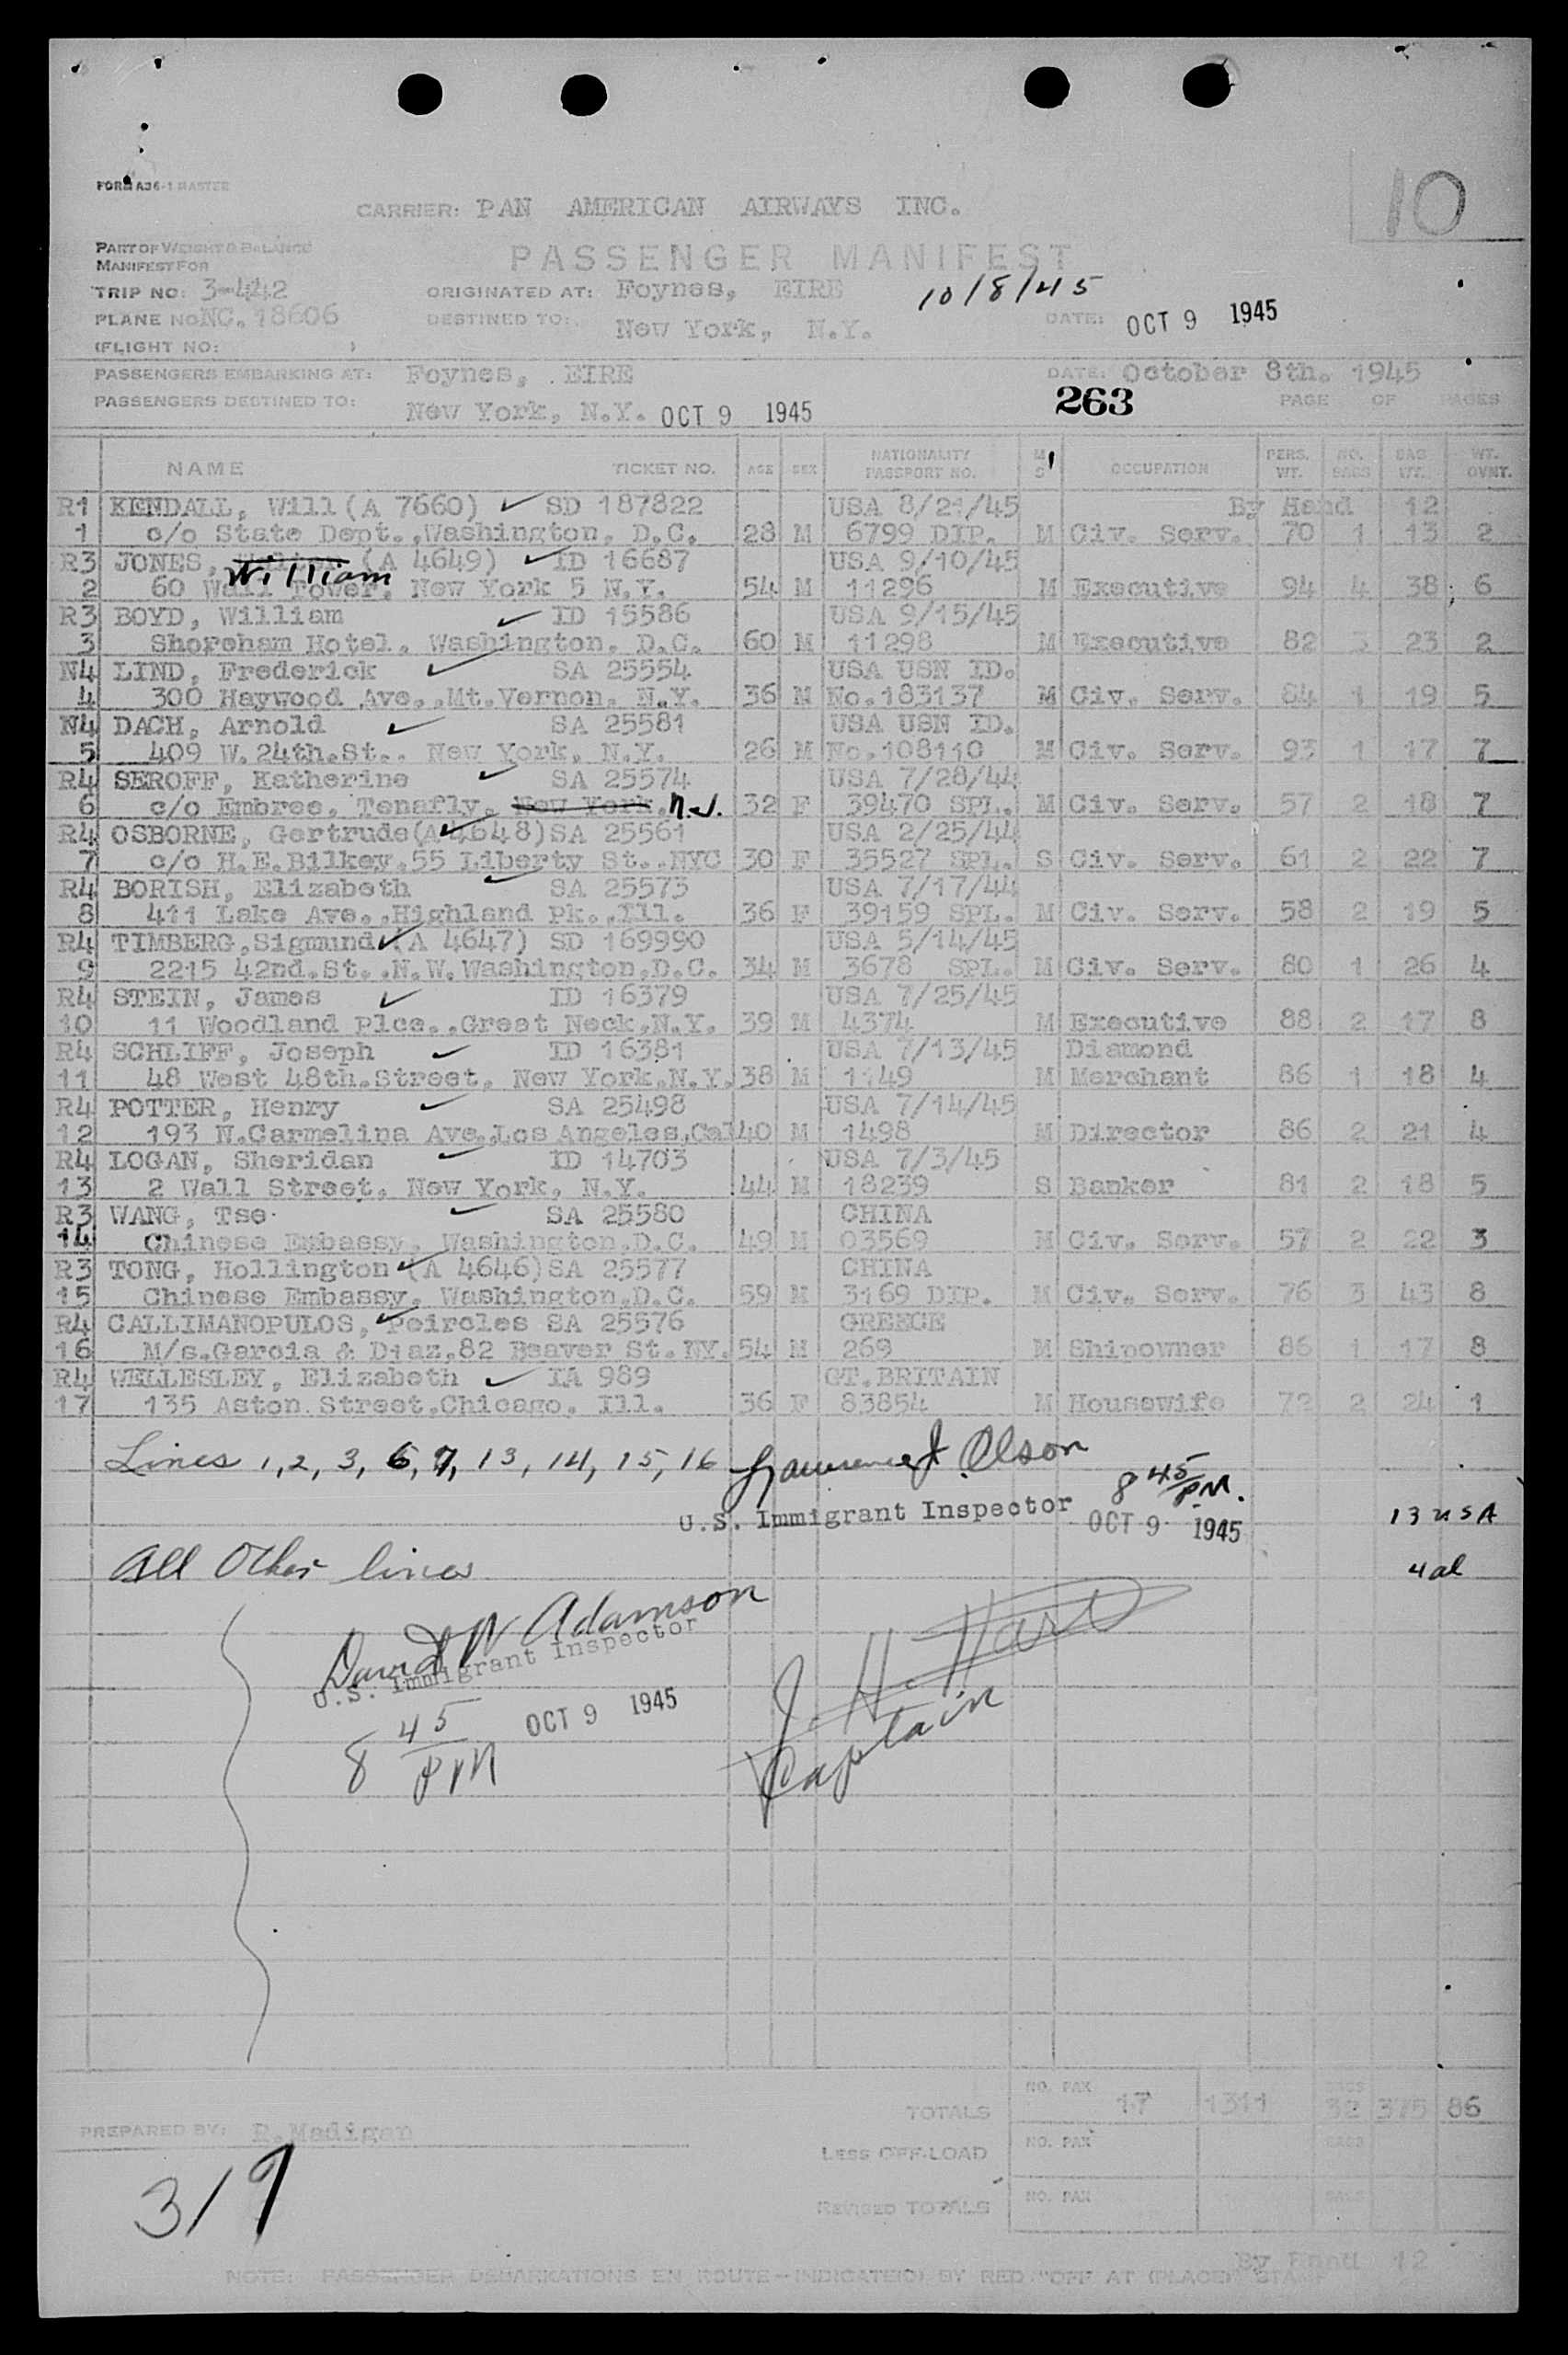 10
FORM A36-1 MASTER
CARRIER: PAN AMERICAN AIRWAYS INC.
PART OF WEIGHT & BALANCE
MANIFEST FOR
PASSENGER MANIFEST
TRIP NO: 3-442 ORIGINATED AT: Foynes, EIRE 10/8/45
PLANE NO NC. 18606 DESTINED TO: New York, N.Y. DATE: OCT 9 1945
(FLIGHT NO: )
PASSENGERS EMBARKING AT: Foynes, EIRE DATE: October 8th. 1945
PASSENGERS DESTINED TO: New York, N.Y. OCT 9 1945 263 PAGE OF PAGES
NAME TICKET NO. AGE SEX NATIONALITY PASSPORT NO. M S OCCUPATION PERS. WT. NO. BAGS BAG WT. WT. OVNT.
R1 KENDALL, Will (A 7660) SD 187822 USA 8/21/45 By Hand 12
1 c/o State Dept., Washington, D.C. 28 M 6799 DIP. M Civ. Serv. 70 1 13 2
R3 JONES, William (A 4649) ID 16687 USA 9/10/45
2 60 Wall Tower, New York 5 N.Y. 54 M 11296 M Executive 94 4 38 6
R3 BOYD, William ID 15586 USA 9/15/45
3 Shoreham Hotel, Washington, D.C. 60 M 11298 M Executive 82 3 23 2
N4 LIND, Frederick SA 25554 USA USN ID.
4 300 Haywood Ave., Mt. Vernon, N.Y. 36 M No. 183137 M Civ. Serv. 84 1 19 5
N4 DACH, Arnold SA 25581 USA USN ID.
5 409 W. 24th. St., New York, N.Y. 26 M No. 108110 M Civ. Serv. 93 1 17 7
R4 SEROFF, Katherine SA 25574 USA 7/28/44
6 c/o Embree, Tenafly, New York, N.J. 32 F 39470 SPL. M Civ. Serv. 57 2 18 7
R4 OSBORNE, Gertrude (A 4648) SA 25561 USA 2/25/44
7 c/o H.E.Bilkey, 55 Liberty St., NYC 30 F 35527 SPL. S Civ. Serv. 61 2 22 7
R4 BORISH, Elizabeth SA 25573 USA 7/17/44
8 411 Lake Ave., Highland Pk., Ill. 36 F 39159 SPL. M Civ. Serv. 58 2 19 5
R4 TIMBERG, Sigmund (A 4647) SD 169990 USA 5/14/45
9 2215 42nd. St., N.W. Washington, D.C. 34 M 3678 SPL. M Civ. Serv. 80 1 26 4
R4 STEIN, James ID 16379 USA 7/25/45
10 11 Woodland Plce., Great Neck, N.Y. 39 M 4374 M Executive 88 2 17 8
R4 SCHLIFF, Joseph ID 16381 USA 7/13/45 Diamond
11 48 West 48th. Street, New York, N.Y. 38 M 1149 M Merchant 86 1 18 4
R4 POTTER, Henry SA 25498 USA 7/14/45
12 193 N.Carmelina Ave., Los Angeles, Cal 40 M 1498 M Director 86 2 21 4
R4 LOGAN, Sheridan ID 14703 USA 7/3/45
13 2 Wall Street, New York, N.Y. 44 M 18239 S Banker 81 2 18 5
R3 WANG, Tse SA 25580 CHINA
14 Chinese Embassy, Washington, D.C. 49 M 03569 M Civ. Serv. 57 2 22 3
R3 TONG, Hollington (A 4646) SA 25577 CHINA
15 Chinese Embassy, Washington, D.C. 59 M 3169 DIP. M Civ. Serv. 76 3 43 8
R4 CALLIMANOPULOS, Peircles SA 25576 GREECE
16 M/s. Garcia & Diaz, 82 Beaver St. NY. 54 M 269 M Shipowner 86 1 17 8
R4 WELLESLEY, Elizabeth IA 989 GT. BRITAIN
17 135 Aston Street, Chicago, Ill. 36 F 83854 M Housewife 72 2 24 1
Lines 1, 2, 3, 6, 7, 13, 14, 15, 16 Lawrence J. Olson
U.S. Immigrant Inspector 8 45 PM.
OCT 9 1945
13 USA
4 al
All Other lines
David W Adamson
U.S. Immigrant Inspector
8 45 PM OCT 9 1945
J. H. Hart
Captain
TOTALS NO. PAX 17 1311 BAGS 32 375 86
PREPARED BY: R. Madigan
LESS OFF-LOAD NO. PAX BAGS
REVISED TOTALS NO. PAX BAGS
319
By Hand 12
NOTE: PASSENGER DEBARKATIONS EN ROUTE - INDICATE(D) BY RED "OFF AT (PLACE)" STAMP